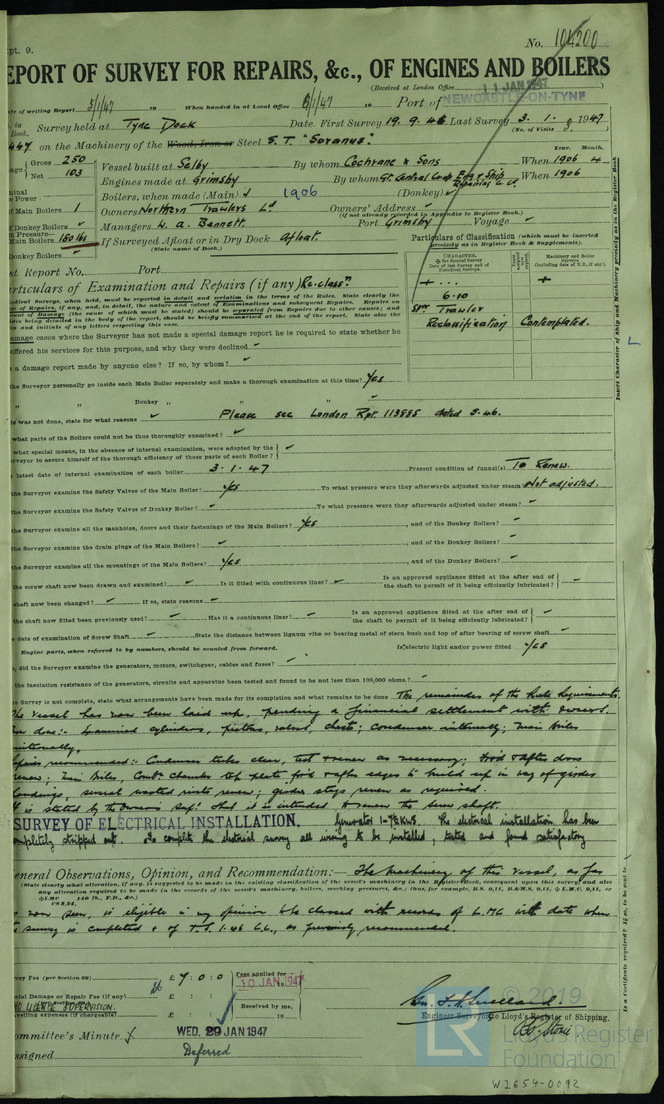 pt. 9.
No. 104200
EPORT OF SURVEY FOR REPAIRS, &c., OF ENGINES AND BOILERS
(Received at London Office 11 JAN 1947 )
te of writing Report 5/1/47 19 When handed in at Local Office 6/1/47 19 Port of NEWCASTLE-ON-TYNE
in Book. Survey held at Tyne Dock Date. First Survey 19.9.46 Last Survey 3.1. 1947
(No. of Visits )
447 on the Machinery of the Wood, Iron or Steel S.T. "Soranus".
Gross 250 Vessel built at Selby By whom Cochrane & Sons When 1906 4
Net 103
Engines made at Grimsby By whom Gt. Central Coop Eng & Ship Repairing Co. Ld. When 1906
Boilers, when made (Main) 1906 (Donkey)
Main Boilers 1 Owners Northern Trawlers Ld Owners' Address
(if not already recorded in Appendix to Register Book.)
Donkey Boilers Managers W. A. Bennett. Port Grimsby Voyage
Main Boilers 180 lbs If Surveyed Afloat or in Dry Dock Afloat.
(State name of Dock.)
Donkey Boilers
Particulars of Classification (which must be inserted precisely as in Register Book & Supplements).
st Report No. Port
articulars of Examination and Repairs (if any) Re-class"
CHARACTER.
Machinery and Boiler Surveys
(including date of N.B., if any).
+
6.10
Str Trawler
Reclassification Contemplated.
Insert Character of Ship and Machinery precisely as in the Register Book.
amage cases where the Surveyor has not made a special damage report he is required to state whether he
offered his services for this purpose, and why they were declined
s a damage report made by anyone else? If so, by whom?
the Surveyor personally go inside each Main Boiler separately and make a thorough examination at this time? Yes
" " Donkey " " " "
is was not done, state for what reasons Please see London Rpt. 113885 dated 3.46.
what parts of the Boilers could not be thus thoroughly examined?
what special means, in the absence of internal examination, were adopted by the
urveyor to assure himself of the thorough efficiency of those parts of each Boiler?
latest date of internal examination of each boiler 3.1.47 Present condition of funnel(s) To Renew.
the Surveyor examine the Safety Valves of the Main Boiler? Yes To what pressure were they afterwards adjusted under steam Not adjusted.
the Surveyor examine the Safety Valves of Donkey Boiler? To what pressure were they afterwards adjusted under steam?
the Surveyor examine all the manholes, doors and their fastenings of the Main Boilers? Yes , and of the Donkey Boilers?
the Surveyor examine the drain pings of the Main Boilers? , and of the Donkey Boilers?
the Surveyor examine all the mountings of the Main Boilers? Yes , and of the Donkey Boilers?
the screw shaft now been drawn and examined? Is it fitted with continuous liner? Is an approved appliance fitted at the after end of
the shaft to permit of it being efficiently lubricated?
shaft now been changed? If so, state reasons
the shaft now fitted been previously used? Has it a continuous liner? Is an approved appliance fitted at the after end of
the shaft to permit of it being efficiently lubricated?
date of examination of Screw Shaft State the distance between lignum vitæ or bearing metal of stern bush and top of after bearing of screw shaft
Engine parts, when referred to by numbers, should be counted from forward. Is electric light and/or power fitted Yes
, did the Surveyor examine the generators, motors, switchgear, cables and fuses?
the insulation resistance of the generators, circuits and apparatus been tested and found to be not less than 100,000 ohms.?
he Survey is not complete, state what arrangements have been made for its completion and what remains to be done The remainder of the Rule Requirements.
The vessel has now been laid up, pending a financial settlement with owners.
now done:- Examined cylinders, pistons, valves, chests; condenser internally; Main Boiler
internally.
pairs recommended:- Condenser tubes clean, test & renew as necessary; Fwd & after doors
renew; Main Boiler, Combn. chamber top plate fwd & after edges to build up in way of girder
landings, several wasted rivets renew; girder stays renew as required.
It is stated by the Owners Supt. that it is intended to renew the screw shaft.
SURVEY OF ELECTRICAL INSTALLATION. Generator 1-7½ KWs. The electrical installation has been
ompletely stripped out. To complete the electrical survey all wiring to be installed, tested and found satisfactory
eneral Observations, Opinion, and Recommendation:- The machinery of this vessel, as far
(State clearly what alteration, if any, is suggested to be made in the existing classification of the vessel's machinery in the Register Book, consequent upon this survey, and also
any alteration required to be made in the records of the vessel's machinery, boilers, working pressures, &c.; thus, for example, B.S. 9,11, B.&M.S. 9,11, &c.)
s now seen, is eligible in my opinion to be classed with records of L.MC with date when
survey is completed & of T.S. 1.46 C.L., as previously recommended.
Is a Certificate required? If so, to be sent to
vey Fee (per Section 29) £ 7 : 0 : 0 Fees applied for
10 JAN 1947
ecial Damage or Repair Fee (if any) £ : :
LICENCE SUPERVISION.
velling expenses (if chargeable) £ : : Received by me,
19
Engineer Surveyor to Lloyd's Register of Shipping.
ommittee's Minute WED. 29 JAN 1947
ssigned Deferred
© 2019
LR
Lloyd's Register
Foundation
W1654-0092